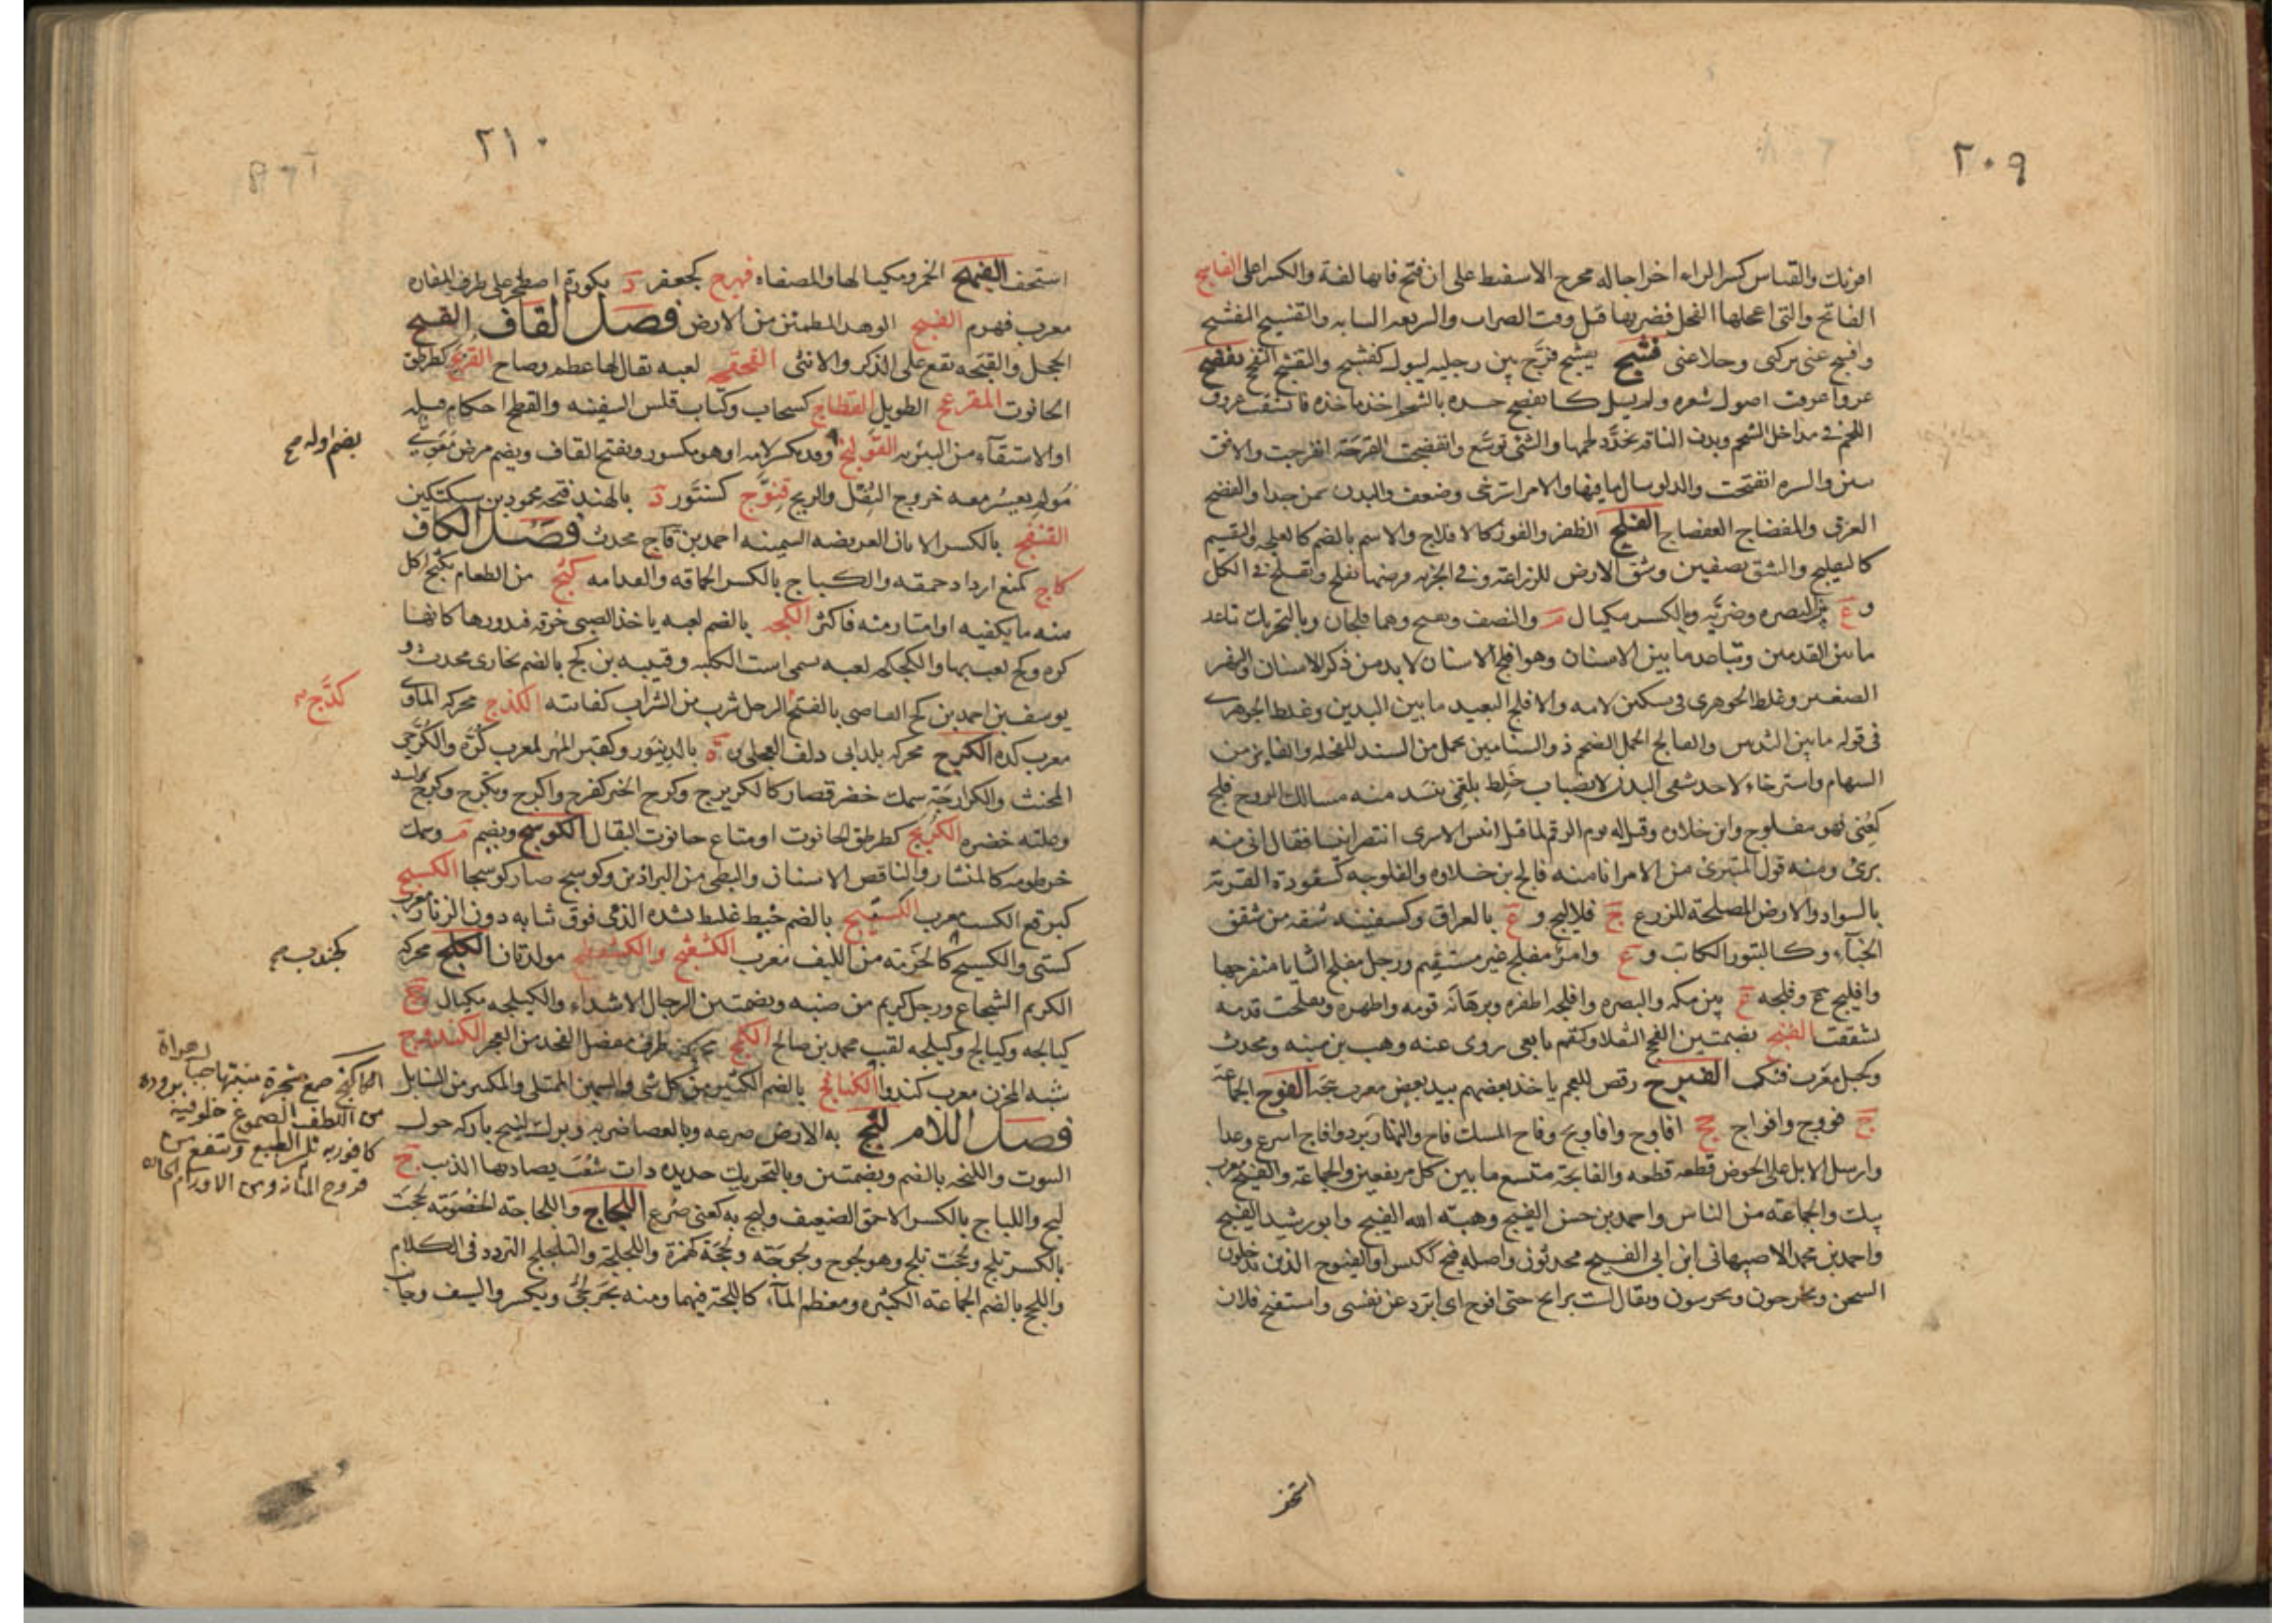 ٢٠٩
افرنك والقياس كسر الراء اخراجا له مخرج الاسفنط على ان فتح فائها لغة والكسر اعلى الفاسج
الفاتح والتى اعجلها الفحل فضربها قبل وقت الضراب والتفشيح
وافسج عنى تركنى وخلا عنى فشج يفشج فرّج بين رجليه ليبول كفشّج والتفشّج التفحّج تفضج
عرقا عرقت اصول شعره ولم يسل كانفضج جسده بالشحم اخذ ماخذه فانشقت عروق
اللحم فى مداخل الشحم وبدن الناقة تخدّد لحمها والشئ توسّع وانفضجت القرحة انفرجت والافق
تبيّن والسرة انفتحت والدلو سال ما فيها والامر استرخى وضعف والبدن سمن جدا والفضيج
العرق والمفضاج العفضاج الفلج الظفر والفوز كالافلاج والاسم بالضم كالفلجة والتقسيم
كالتفليج والشق نصفين وشق الارض للزراعة وفى الجزية فرضها يفلج ويفلج فى الكل
و ع قرب البصره وضريّة وبالكسر مكيال م والنصف ويفتح وهما فلجان وبالتحريك تباعد
ما بين القدمين وتباعد ما بين الاسنان وهو افلج الاسنان لا بد من ذكر الاسنان والنهر
الصغير وغلط الجوهرى فى تسكين لامه والافلج البعيد ما بين اليدين وغلط الجوهرى
فى قوله ما بين الثديين والفالج الجمل الضخم ذو السنامين يحمل من السند للفحله والفايز من
السهام واسترخاء لاحد شقى البدن لانصباب خلط بلغمى تنسد منه مسالك الروح فلج
كعنى فهو مفلوج وابن خلاوه وقيل له يوم الرقم لما قتل انيس الاسرى اتنصر انيسا فقال انى منه
برئ ومنه قول المتبرئ من الامر انا منه فالج بن خلاوه والفلوجه كسفودة القرية
بالسواد والارض المصلحة للزرع ج فلاليج و ع بالعراق وكسفينه شقه من شقق
الخباء وكالتنور الكاتب و ع وامر مفلج غير مستقيم ورجل مفلج الثنايا منفرجها
وافليج ع وفلجه ع بين مكه والبصره وافلجه اظفره وبرهانه قومه واظهره وتفلجت قدمه
تشققت الفنج بضمتين الفحج الثقلا وكبقم تابعى روى عنه وهب بن منبه ومحدث
وكجبل معرب فنك الفنزج رقص للعجم ياخذ بعضهم بيد بعض معرب پنجه الفوج الجماعة
ج فووج وافواج جج افاوج وافاويج وفاج المسك فاح والنهار برد وافاج اسرع وعدا
وارسل الابل على الحوض قطعه قطعه والفايجة متسع ما بين كل مرتفعين والجماعة والفيج معرب
پيك والجماعه من الناس واحمد بن حسن الفيج وهبة الله الفيج وابو رشيد الفيج
واحمد بن محمد الاصبهانى ابن ابى الفيج محدثون واصله فيج ككيس او الفيوج الذين يدخلون
السجن ويخرجون ويحرسون ويقال لست برايح حتى افوج اى ابرد عن نفسى واستفيج فلان
استخف
٢١٠
استخف الفيهج الخمر ومكيالها والمصفاه فهرج كجعفر د بكورة اصطخر على طرف المفازه
معرب فهره الفيج الوهد المطمئن من الارض فصل القاف القبج
الحجل والقبجه تقع على الذكر والانثى القحقحه لعبه يقال لها عظم وضاح القربج كطربق
الحانوت المقرعج الطويل القطاج كسحاب وكتاب قلس السفينه والقطج احكام فتله
او الاستقاء من البئر به القولنج وقد تكسر لامه او هو مكسور ويفتح القاف ويضم مرض معوى
مولم يعسر معه خروج الثفل والريح قنوّج كسنّور د بالهند فتحه محمود بن سبكتكين
القنفج بالكسر الاتان العريضه السمينه احمد بن قاج محدث فصل الكاف
كاج كمنع ازداد حمقه والكياج بالكسر الحماقه والفدامه كثج من الطعام يكثج اكل
منه ما يكفيه او امتار منه فاكثر الكجه بالضم لعبه ياخذ الصبى خرقه فيدورها كانها
كره وكج لعب بها والكجكجه لعبه تسمى است الكلبه وقتيبه بن كج بالضم بخارى محدث و
يوسف بن احمد بن كج القاضى بالفتح الرجل شرب من الشراب كفايته الكذج محركه الماوى
معرب كده الكرج محركه بلد ابى دلف العجلى و ة بالدينور وكقبّر المهر لمعرب كرّه والكرّجى
المخنث والكرارجة سمك خضر قصار كالكريرج وكرج الخبز كفرح واكرج وتكرج وكرّج فسد
وعلته خضره الكربج كطربق الحانوت او متاع حانوت البقال الكوسج ويضم م وسمك
خرطومه كالمنشار والناقص الاسنان والبطى من البراذين وكوسج صار كوسجا الكسبج
كبرقع الكسب معرب الكستيج بالضم خيط غليظ يشده الذمى فوق ثيابه دون الزنار معرب
كستى والكسبج كالحزمه من الليف معرب الكشعثج والكشعظج مولدتان الكلج محركه
الكريم الشجاع ورجل كريم من ضبه وبضمتين الرجال الاشداء والكيلجه مكيال ج
كيالجه وكيالج وكيلجه لقب محمد بن صالح الكمج محركه طرف مفصل الفخذ من العجز الكندوج
شبه المخزن معرب كندو الكنافج بالضم الكثير من كل شئ والسمين الممتلى والمكنز من السنابل
فصل اللام لبج به الارض صرعه وبالعصا ضربه وبرك لبيج باركه حول
البيوت واللبجه بالضم وبضمتين وبالتحريك حديده ذات شعب يصاد بها الذيب ج
لبج واللباج بالكسر الاحمق الضعيف ولبج به كعنى صرع اللجاج واللجاجة الخصومة لججت
بالكسر تلج ولججت تلج وهو لجوج ولجوجة ولججة كهمزة واللجلجة والتلجلج التردد فى الكلام
واللج بالضم الجماعة الكثيره ومعظم الماء كاللجة فيهما ومنه بحر لجى ويكسر والسيف وجانب
بضم اوله صح
كدّج
كجندب صح
الكاكنج صمغ شجرة منبتها جبال هراة
من الطف الصموغ حلو فيه برودة
كافوريه يلين الطبع وينفع من
قروح المثانة ومن الاورام الحارة